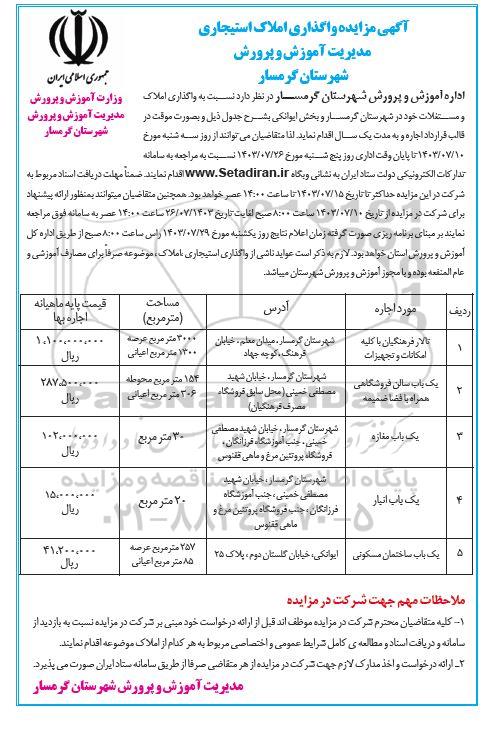 آگهی مزایده واگذاری املاک استیجاری
مدیریت آموزش و پرورش
شهرستان گرمسار
جمهوری اسلامی ایران
وزارت آموزش و پرورش
مدیریت آموزش و پرورش
شهرستان گرمسار
اداره آموزش و پرورش شهرستان گرمسار در نظر دارد نسبت به واگذاری املاک
و مستغلات خود در شهرستان گرمسار و بخش ایوانکی بشرح جدول ذیل و بصورت موقت در
قالب قرارداد اجاره و به مدت یک سال اقدام نماید. لذا متقاضیان می توانند از روز سه شنبه مورخ
۱۴۰۳/۰۷/۱۰ تا پایان وقت اداری روز پنج شنبه مورخ ۱۴۰۳/۰۷/۲۶ نسبت به مراجعه به سامانه
تدارکات الکترونیکی دولت ستاد ایران به نشانی وبگاه www.Setadiran.ir اقدام نمایند. ضمناً مهلت دریافت اسناد مربوط به
شرکت در این مزایده حداکثر تا تاریخ ۱۴۰۳/۰۷/۱۵ تا ساعت ۱۴:۰۰ عصر خواهد بود. همچنین متقاضیان میتوانند بمنظور ارائه پیشنهاد
برای شرکت در مزایده از تاریخ ۱۴۰۳/۰۷/۱۰ ساعت ۸:۰۰ صبح لغایت تاریخ ۲۶/۰۷/۱۴۰۳ ساعت ۱۴:۰۰ عصر به سامانه فوق مراجعه
نمایند بر مبنای برنامه ریزی صورت گرفته زمان اعلام نتایج روز یکشنبه مورخ ۱۴۰۳/۰۷/۲۹ راس ساعت ۸:۰۰ صبح از طریق اداره کل
آموزش و پرورش استان خواهد بود. لازم به ذکر است عواید ناشی از واگذاری استیجاری ،املاک ، موضوعه صرفاً برای مصارف آموزشی و
عام المنفعه بوده و با مجوز آموزش و پرورش شهرستان میباشد.
ردیف مورد اجاره آدرس مساحت (مترمربع) قیمت پایه ماهیانه اجاره بها
۱ تالار فرهنگیان با کلیه امکانات و تجهیزات شهرستان گرمسار ، میدان معلم ، خیابان فرهنگ ،کوچه جهاد ۳۰۰۰ متر مربع عرصه ۱۳۰۰ متر مربع اعیانی ۱،۱۰۰،۰۰۰،۰۰۰ ریال
۲ یک باب سالن فروشگاهی همراه با فضا ضمیمه شهرستان گرمسار ، خیابان شهید مصطفی خمینی (محل سابق فروشگاه مصرف فرهنگیان) ۱۵۴ متر مربع محوطه ۳۰۶ متر مربع اعیانی ۲۸۷،۵۰۰،۰۰۰ ریال
۳ یک باب مغازه شهرستان گرمسار ، خیابان شهید مصطفی خمینی ، جنب آموزشگاه فرزانگان ، فروشگاه پروتئین مرغ و ماهی ققنوس ۳۰ متر مربع ۱۰۲،۰۰۰،۰۰۰ ریال
۴ یک باب انبار شهرستان گرمسار ، خیابان شهید مصطفی خمینی ، جنب آموزشگاه فرزانگان ، جنب فروشگاه پروتئین مرغ و ماهی ققنوس ۲۰ متر مربع ۱۵،۰۰۰،۰۰۰ ریال
۵ یک باب ساختمان مسکونی ایوانکی، خیابان گلستان دوم ، پلاک ۲۵ ۲۵۷ متر مربع عرصه ۸۵ متر مربع اعیانی ۴۱،۲۰۰،۰۰۰ ریال
ملاحظات مهم جهت شرکت در مزایده
۱- کلیه متقاضیان محترم شرکت در مزایده موظف اند قبل از ارائه درخواست خود مبنی بر شرکت در مزایده نسبت به بازدید از
سامانه و دریافت اسناد و مطالعه ی کامل شرایط عمومی و اختصاصی مربوط به هر کدام از املاک موضوعه اقدام نمایند.
۲- ارائه درخواست و اخذ مدارک لازم جهت شرکت در مزایده از هر متقاضی صرفا از طریق سامانه ستاد ایران صورت می پذیرد.
مدیریت آموزش و پرورش شهرستان گرمسار